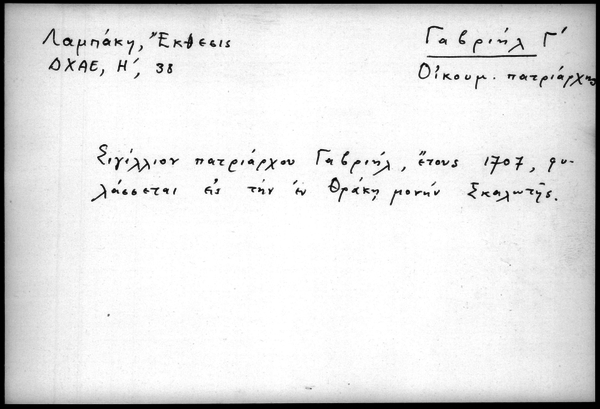 Λαμπάκη, Ἔκθεσις
ΔΧΑΕ, Η', 38
Γαβριήλ Γ'
Οἰκουμ. πατριάρχης
Σιγίλλιον πατριάρχου Γαβριήλ, ἔτους 1707, φυ-
λάσσεται εἰς τὴν ἐν Θράκῃ μονὴν Σκαλωτῆς.